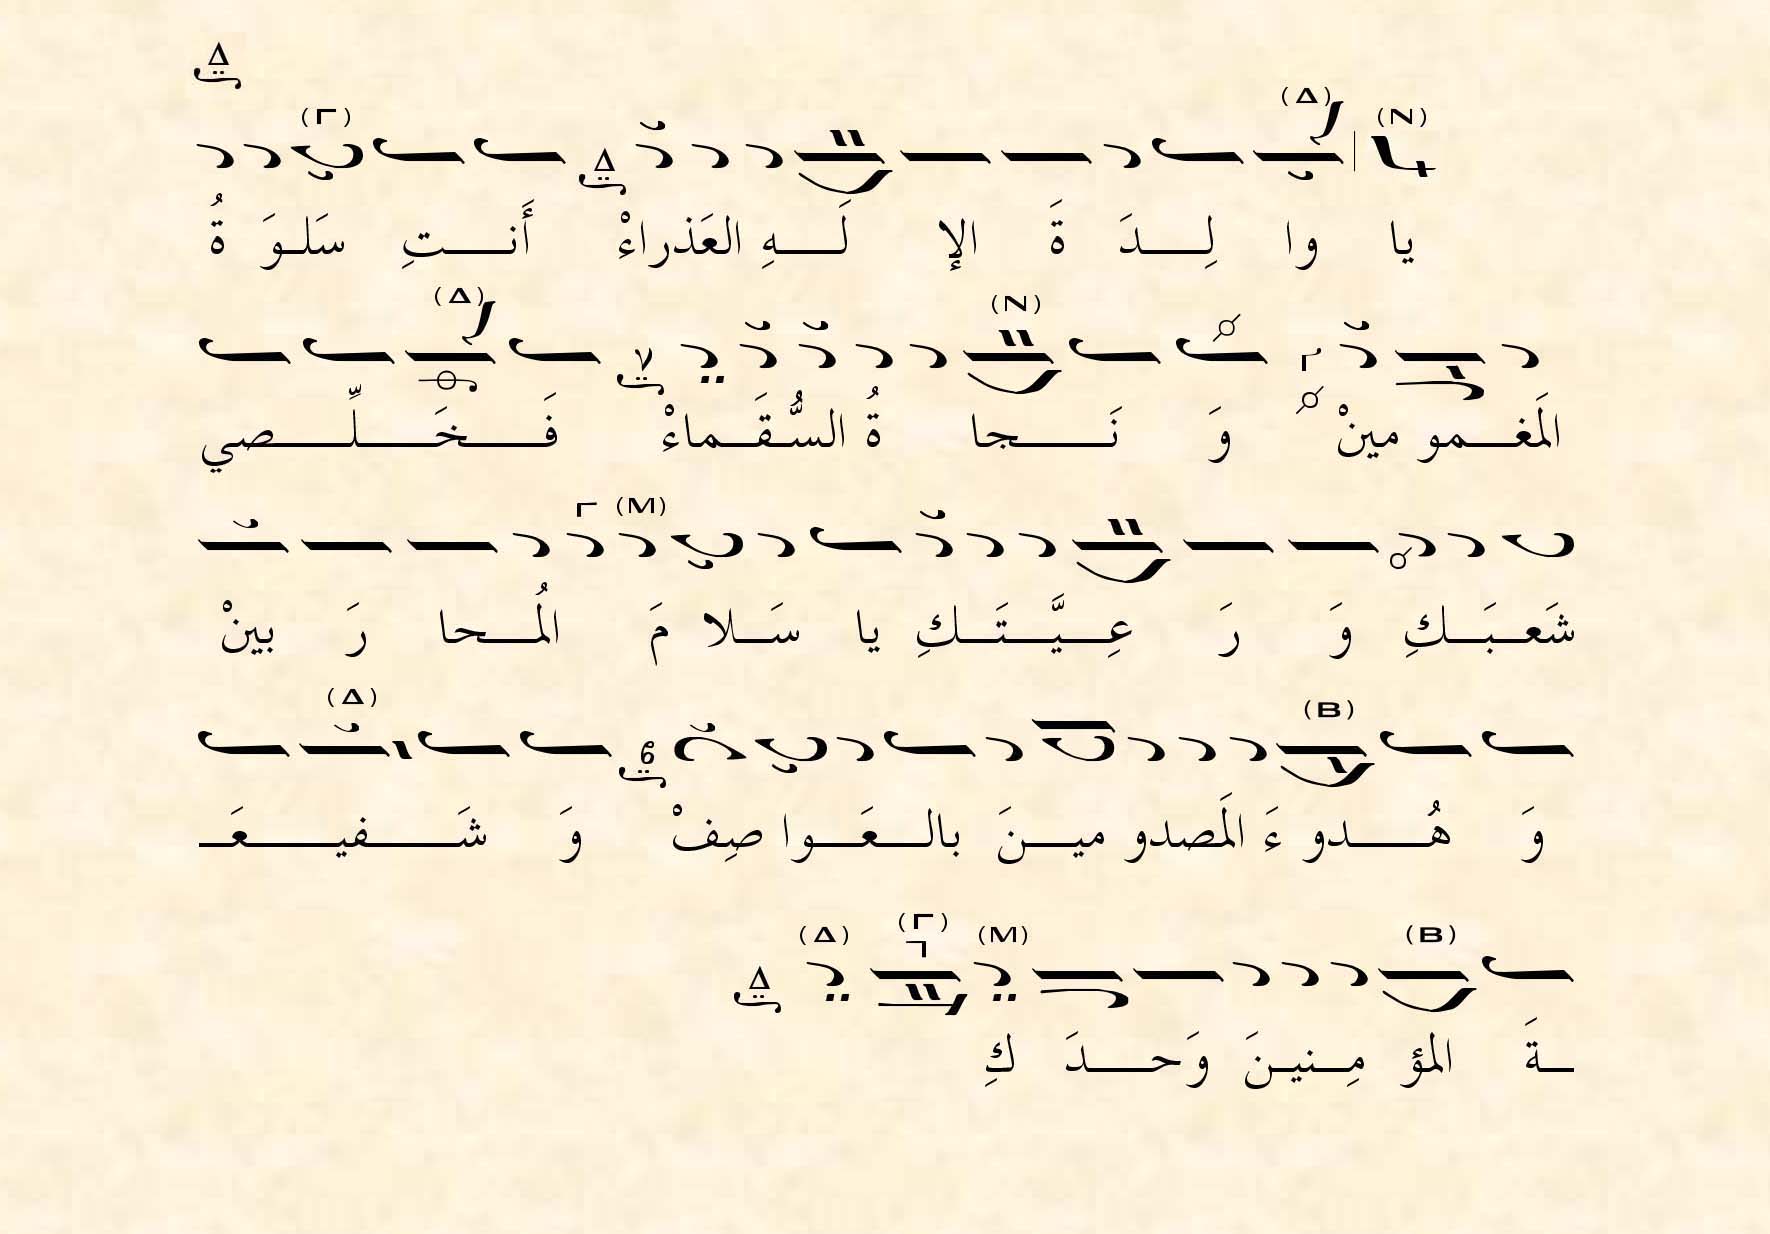 Δ
(Ν) (Δ) Δ (Γ)
يا وا لِـدَ ةَ الإ لَـهِ العَذراءْ أَنـتِ سَلـوَ ةُ
(Ν) (Δ)
المَغـمو مينْ وَ نَـجا ةُ السُّـقَـماءْ فَـخَـلِّـصي
(Μ) Γ
شَعـبَـكِ وَ رَ عِـيَّـتَـكِ يا سَـلا مَ المُـحا رَ بينْ
(Β) (Δ)
وَ هُـدو ءَ المَصدو ميـنَ بالـعَـوا صِفْ وَ شَـفيـعَـ
(Β) (Μ) (Γ) (Δ) Δ
ـةَ المؤ مِـنيـنَ وَحـدَ كِ